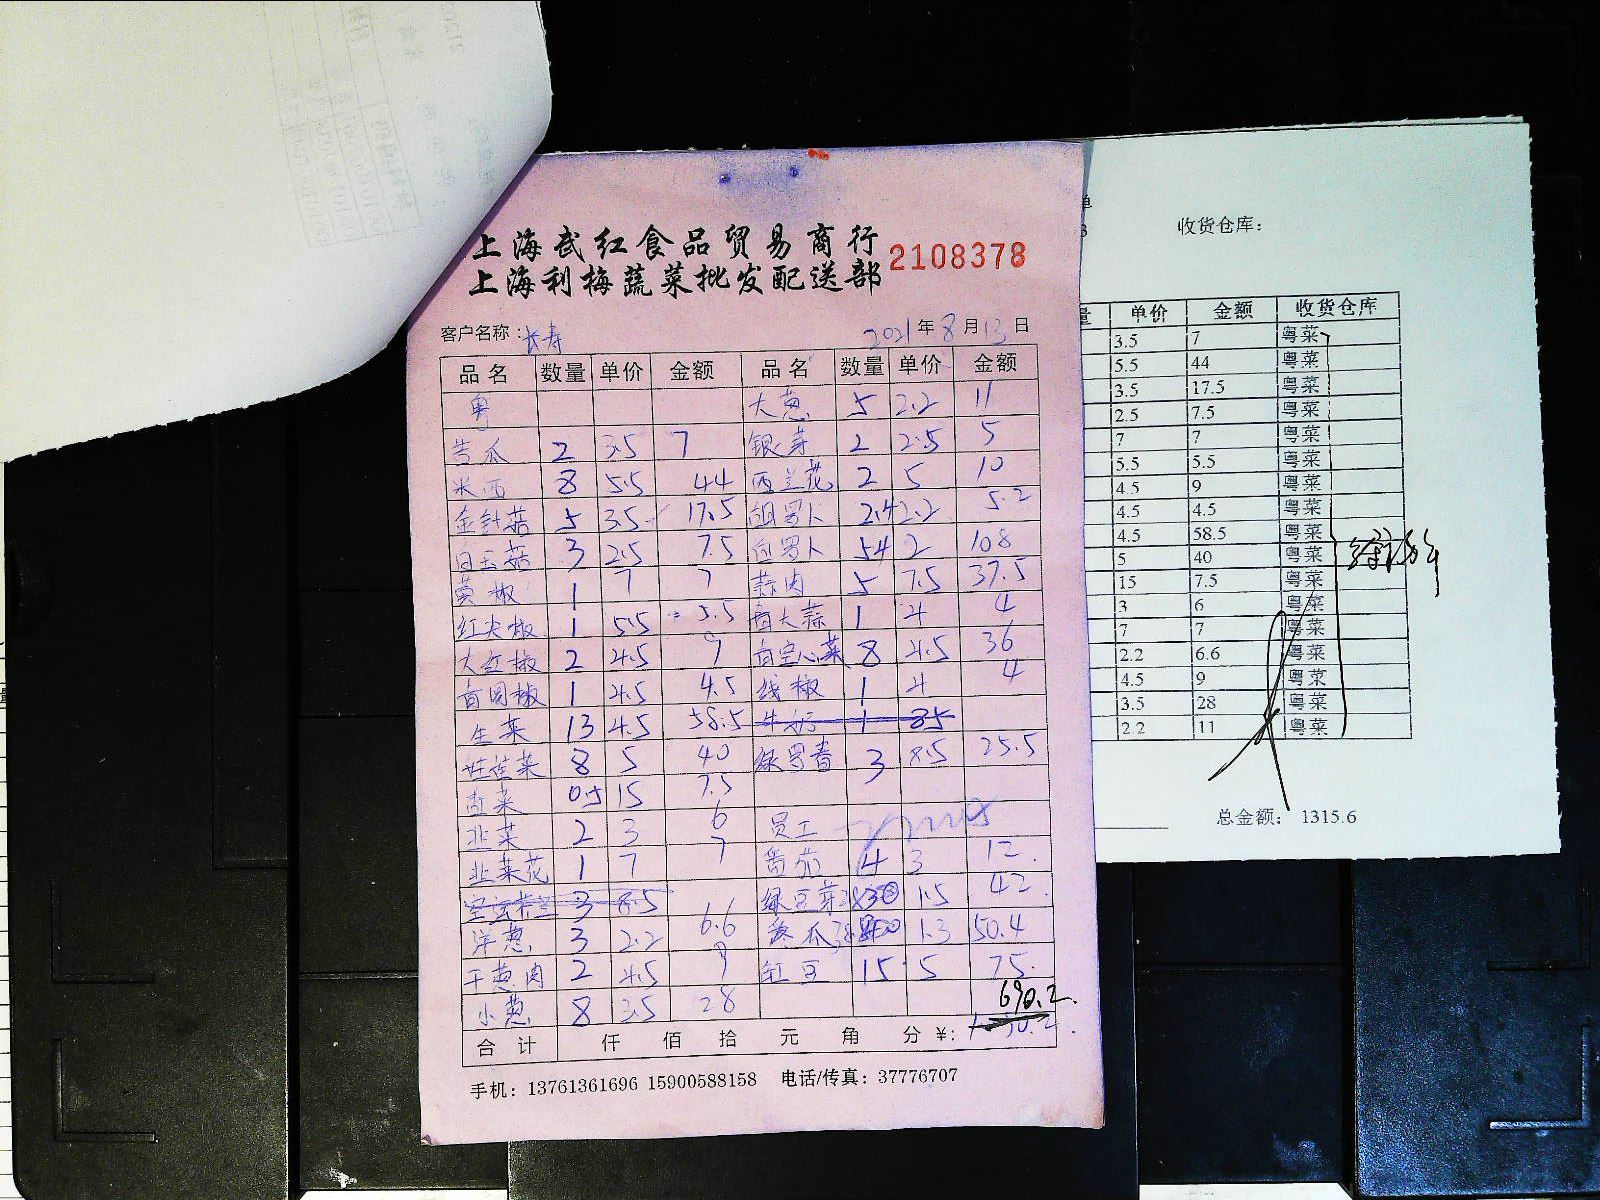 上海武红食品贸易商行
上海利梅蔬菜批发配送部
2108378
客户名称：长寿 2021年8月13日
品名 数量 单价 金额 品名 数量 单价 金额
粤 大葱 5 2.2 11
苦瓜 2 3.5 7 银芽 2 2.5 5
米西 8 5.5 44 西兰花 2 5 10
金针菇 5 3.5 17.5 胡罗卜 2.4 2.2 5.2
白玉菇 3 2.5 7.5 白罗卜 54 2 108
黄椒 1 7 7 蒜肉 5 7.5 37.5
红尖椒 1 5.5 5.5 青大蒜 1 4 4
大红椒 2 4.5 9 青空心菜 8 4.5 36
青圆椒 1 4.5 4.5 线椒 1 4 4
生菜 13 4.5 58.5 1 85
娃娃菜 8 5 40 绿罗春 3 8.5 25.5
0.5 15 7.5
韭菜 2 3 6 员工
韭菜花 1 7 7 番茄 4 3 12.
3 8.5 绿豆芽 1.5 42.
洋葱 3 2.2 6.6 冬瓜 1.3 50.4
干葱肉 2 4.5 9 缸豆 15 5 75.
小葱 8 3.5 28 690.2
合计 仟 佰 拾 元 角 分 ¥:
手机：13761361696 15900588158 电话/传真：37776707
单
收货仓库：
量 单价 金额 收货仓库
3.5 7 粤菜
5.5 44 粤菜
3.5 17.5 粤菜
2.5 7.5 粤菜
7 7 粤菜
5.5 5.5 粤菜
4.5 9 粤菜
4.5 4.5 粤菜
4.5 58.5 粤菜
5 40 粤菜
15 7.5 粤菜
3 6 粤菜
7 7 粤菜
2.2 6.6 粤菜
4.5 9 粤菜
3.5 28 粤菜
2.2 11 粤菜
总金额： 1315.6